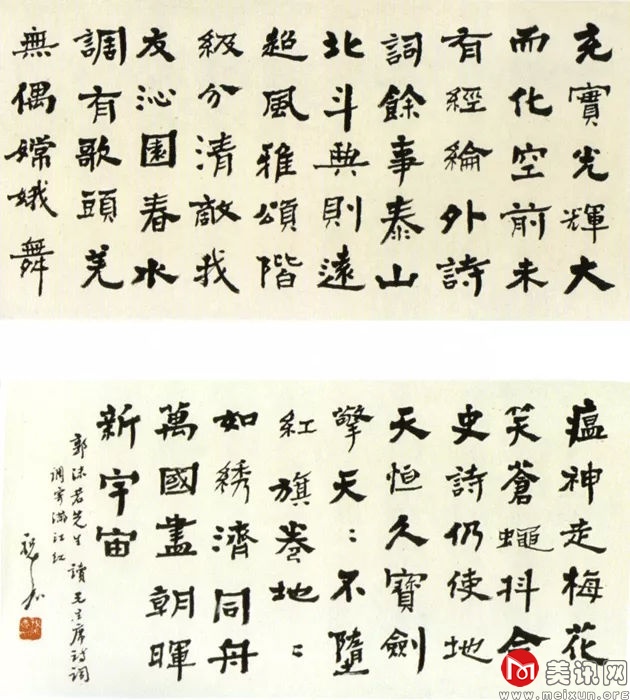 充實光輝大
而化空前未
有經綸外詩
詞餘事泰山
北斗典則遠
超風雅頌階
級分清敵我
友沁園春水
調有歌頭羌
無偶嫦娥舞
瘟神走梅花
笑蒼蠅抖合
史詩仍使地
天恒久寶劍
擎天〻不墮
紅旗卷地〻
如綉濟同舟
萬國盡朝暉
新宇宙
郭沫若先生讀毛主席詩詞
調寄滿江紅
祝嘉
美讯网
www.meixun.org